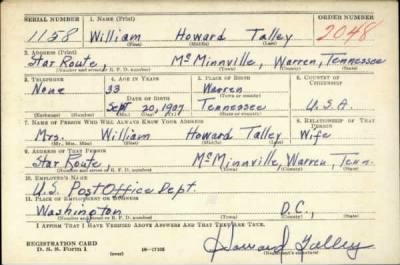 SERIAL NUMBER 1. NAME (Print) ORDER NUMBER
1158 William Howard Talley 2048
(First) (Middle) (Last)
2. ADDRESS (Print)
Star Route, McMinnville, Warren, Tennessee
(Number and street or R. F. D. number) (Town) (County) (State)
3. TELEPHONE 4. AGE IN YEARS 5. PLACE OF BIRTH 6. COUNTRY OF CITIZENSHIP
None 33 Warren
DATE OF BIRTH (Town or county)
Sept 20, 1907 Tennessee U.S.A.
(Exchange) (Number) (Mo.) (Day) (Yr.) (State or country)
7. NAME OF PERSON WHO WILL ALWAYS KNOW YOUR ADDRESS 8. RELATIONSHIP OF THAT PERSON
Mrs. William Howard Talley Wife
(Mr., Mrs., Miss) (First) (Middle) (Last)
9. ADDRESS OF THAT PERSON
Star Route, McMinnville, Warren, Tenn.
(Number and street or R. F. D. number) (Town) (County) (State)
10. EMPLOYER'S NAME
U.S. Post Office Dept.
11. PLACE OF EMPLOYMENT OR BUSINESS
Washington D.C.,
(Number and street or R. F. D. number) (Town) (County) (State)
I AFFIRM THAT I HAVE VERIFIED ABOVE ANSWERS AND THAT THEY ARE TRUE.
REGISTRATION CARD
D. S. S. Form 1 (over) 16—17105
Howard Talley
(Registrant's signature)